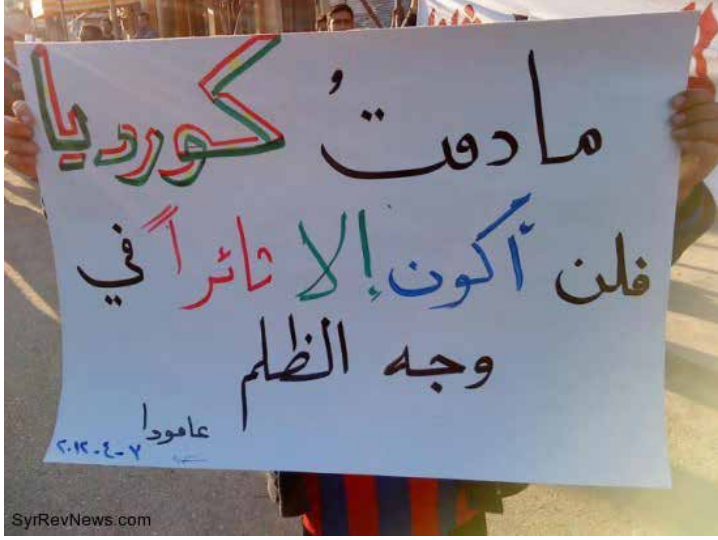 ما دمتُ كورديا
فلن أكون إلا ثائراً في
وجه الظلم
عامودا
٢٠١٢-٤-٧
SyrRevNews.com